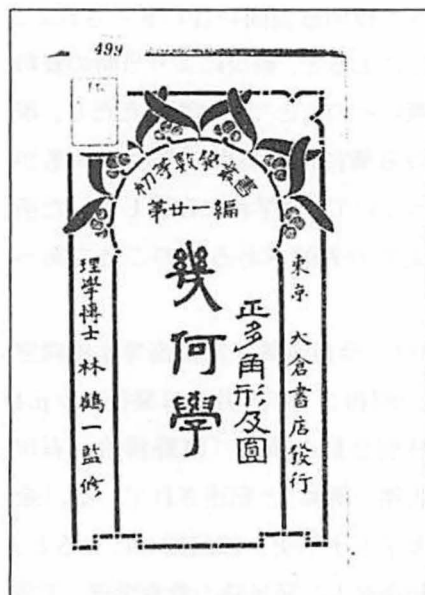 499
初等數學叢書
第廿一編
東京 大倉書店發行
正多角形及圓
幾何學
理學博士 林鶴一監修